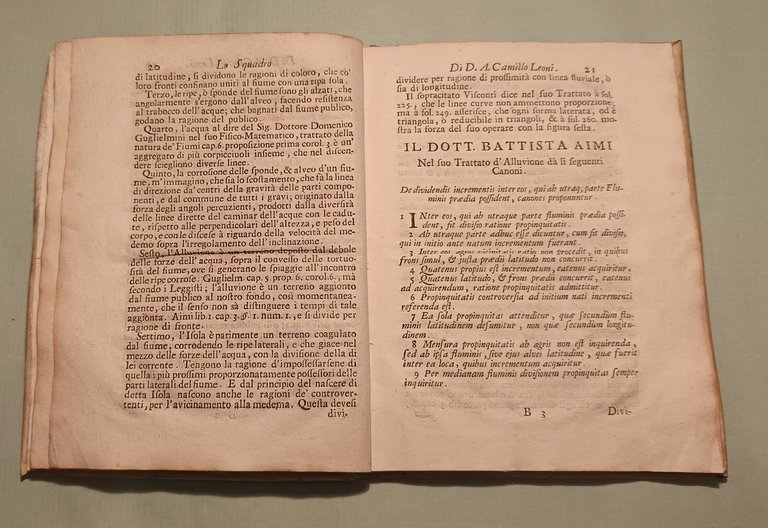 20 Lo Squadro
di latitudine, si dividono le ragioni di coloro, che co'
loro fronti confinano uniti al fiume con una ripa sola.
Terzo, le ripe, ò sponde del fiume sono gli alzati, che
angolarmente s'ergono dall'alveo, facendo resistenza
al trabocco dell'acque; che bagnati dal fiume publico,
godano la ragione del publico.
Quarto, l'acqua al dire del Sig. Dottore Domenico
Guglielmini nel suo Fisico-Matematico, trattato della
natura de' Fiumi cap. 6. proposizione prima corol. 3. è un'
aggregato di più corpicciuoli insieme, che nel discen-
dere sciegliono diverse linee.
Quinto, la corrosione delle sponde, & alveo d'un fiu-
me, m'immagino, che sia lo scostamento, che fà la linea
di direzione da' centri della gravità delle parti compo-
nenti, e dal commune de tutti i gravi; originato dalla
forza degli angoli percuzienti, prodotti dalla diversità
delle linee dirette del caminar dell'acque con le cadu-
te, rispetto alle perpendicolari dell'altezza, e peso del
corpo, e con le discese à riguardo della velocità del me-
demo sopra l'irregolamento dell'inclinazione.
Sesto, l'Alluvione è un terreno deposto dal debole
delle forze dell'acqua, sopra il convesso delle tortuo-
sità del fiume, ove si generano le spiaggie all'incontro
delle ripe corrose. Guglielm. cap. 5. prop. 6. corol. 6., mà
secondo i Leggisti; l'alluvione è un terreno aggionto
dal fiume publico al nostro fondo, così momentanea-
mente, che il senso non sà distinguere i tempi di tale
aggionta. Aimi lib. 1. cap. 3. §. 1. num. 1., e si divide per
ragione di fronte.
Settimo, l'Isola è parimente un terreno coagulato
dal fiume, corrodendo le ripe laterali, e che giace nel
mezzo delle forze dell'acqua, con la divisione della di
lei corrente. Tengono la ragione d'impossessarsene di
quella i più prossimi proporzionatamente possessori delle
parti laterali del fiume. E dal principio del nascere di
detta Isola nascono anche le ragioni de' controver-
tenti, per l'avicinamento alla medema. Questa devesi
divi-
Di D. A. Camillo Leoni. 21
dividere per ragione di prossimità con linea fluviale, ò
sia di longitudine.
Il sopracitato Visconti dice nel suo Trattato à fol.
225., che le linee curve non ammettono proporzione,
ma à fol. 249. asserisce, che ogni forma laterata, od è
triangola, ò reducibile in triangoli, & à fol. 260. mo-
stra la forza del suo operare con la figura sesta.
IL DOTT. BATTISTA AIMI
Nel suo Trattato d'Alluvione dà li seguenti
Canoni.
De dividendis incrementis inter eos, qui ab utraq; parte Flu-
minis prædia possident, canones proponuntur.
1 INter eos, qui ab utraque parte fluminis prædia possi-
dent, fit divisio ratione propinquitatis.
2 Ab utraque parte adhuc esse dicuntur, cum fit divisio,
qui in initio ante natum incrementum fuerant.
3 Inter eos ratio non procedit, in quibus
frons simul, & justa prædii latitudo non concurrit.
4 Quatenus propius est incrementum, eatenus acquiritur.
5 Quatenus latitudo, & frons prædii concurrit, eatenus
ad acquirendum, ratione propinquitatis admittitur.
6 Propinquitatis controversia ad initium nati incrementi
referenda est.
7 Ea sola propinquitas attenditur, quæ secundùm flu-
minis latitudinem desumitur, non quæ secundùm longitu-
dinem.
8 Mensura propinquitatis ab agris non est inquirenda,
sed ab ipsa fluminis, sive ejus alvei latitudine, quæ fuerit
inter ea loca, quibus incrementum acquiritur.
9 Per medianam fluminis divisionem propinquitas semper
inquiritur.
B 3 Divi-